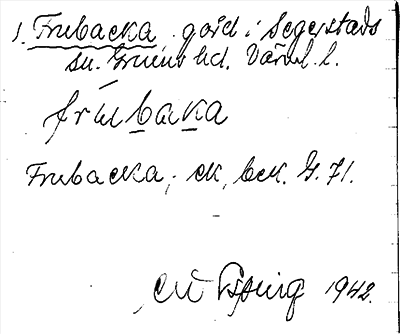 1. Frubacka gård i Segerstads
sn. Grums hd. Värml. l.
frubaka
Frubacka, ek, bek. G. 71.
1942.